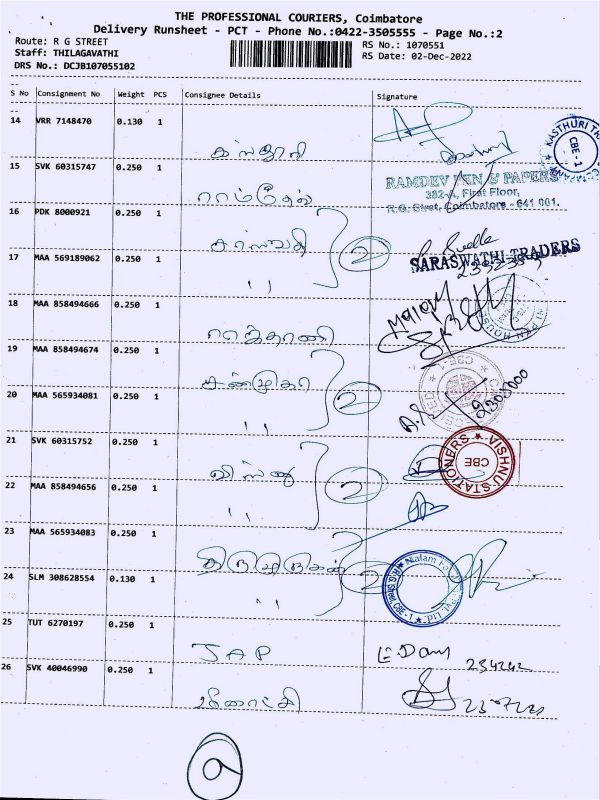 THE PROFESSIONAL COURIERS, Coimbatore
Delivery Runsheet - PCT - Phone No.:0422-3505555 - Page No.:2
Route: R G STREET
Staff: THILAGAVATHI
DRS No.: DCJB107055102
RS No.: 1070551
RS Date: 02-Dec-2022
S No Consignment No Weight PCS Consignee Details Signature
14 VRR 7148470 0.130 1 கஸ்தூரி
KASTHURI
CBE - 1
15 SVK 60315747 0.250 1 ராம்தேவ்
RAMDEV PEN & PAPERS
382-A, First Floor,
R.G. Stret, Coimbatore - 641 001.
16 PDK 8000921 0.250 1 சரஸ்வதி 2
17 MAA 569189062 0.250 1 ,,
SARASWATHI TRADERS
18 MAA 858494666 0.250 1
PEN HOUSE
19 MAA 858494674 0.250 1 சண்முகா 2
CBE-1
20 MAA 565934081 0.250 1 ,,
21 SVK 60315752 0.250 1 விஸ்ணு 2
VISHNU STATIONERS
CBE
22 MAA 858494656 0.250 1 ,,
23 MAA 565934083 0.250 1 திருமுருகன் 2
24 SLM 308628554 0.130 1 ,,
R.G Street CBE - 1
25 TUT 6270197 0.250 1 JAP 234242
26 SVK 40046990 0.250 1 மீனாட்சி
9